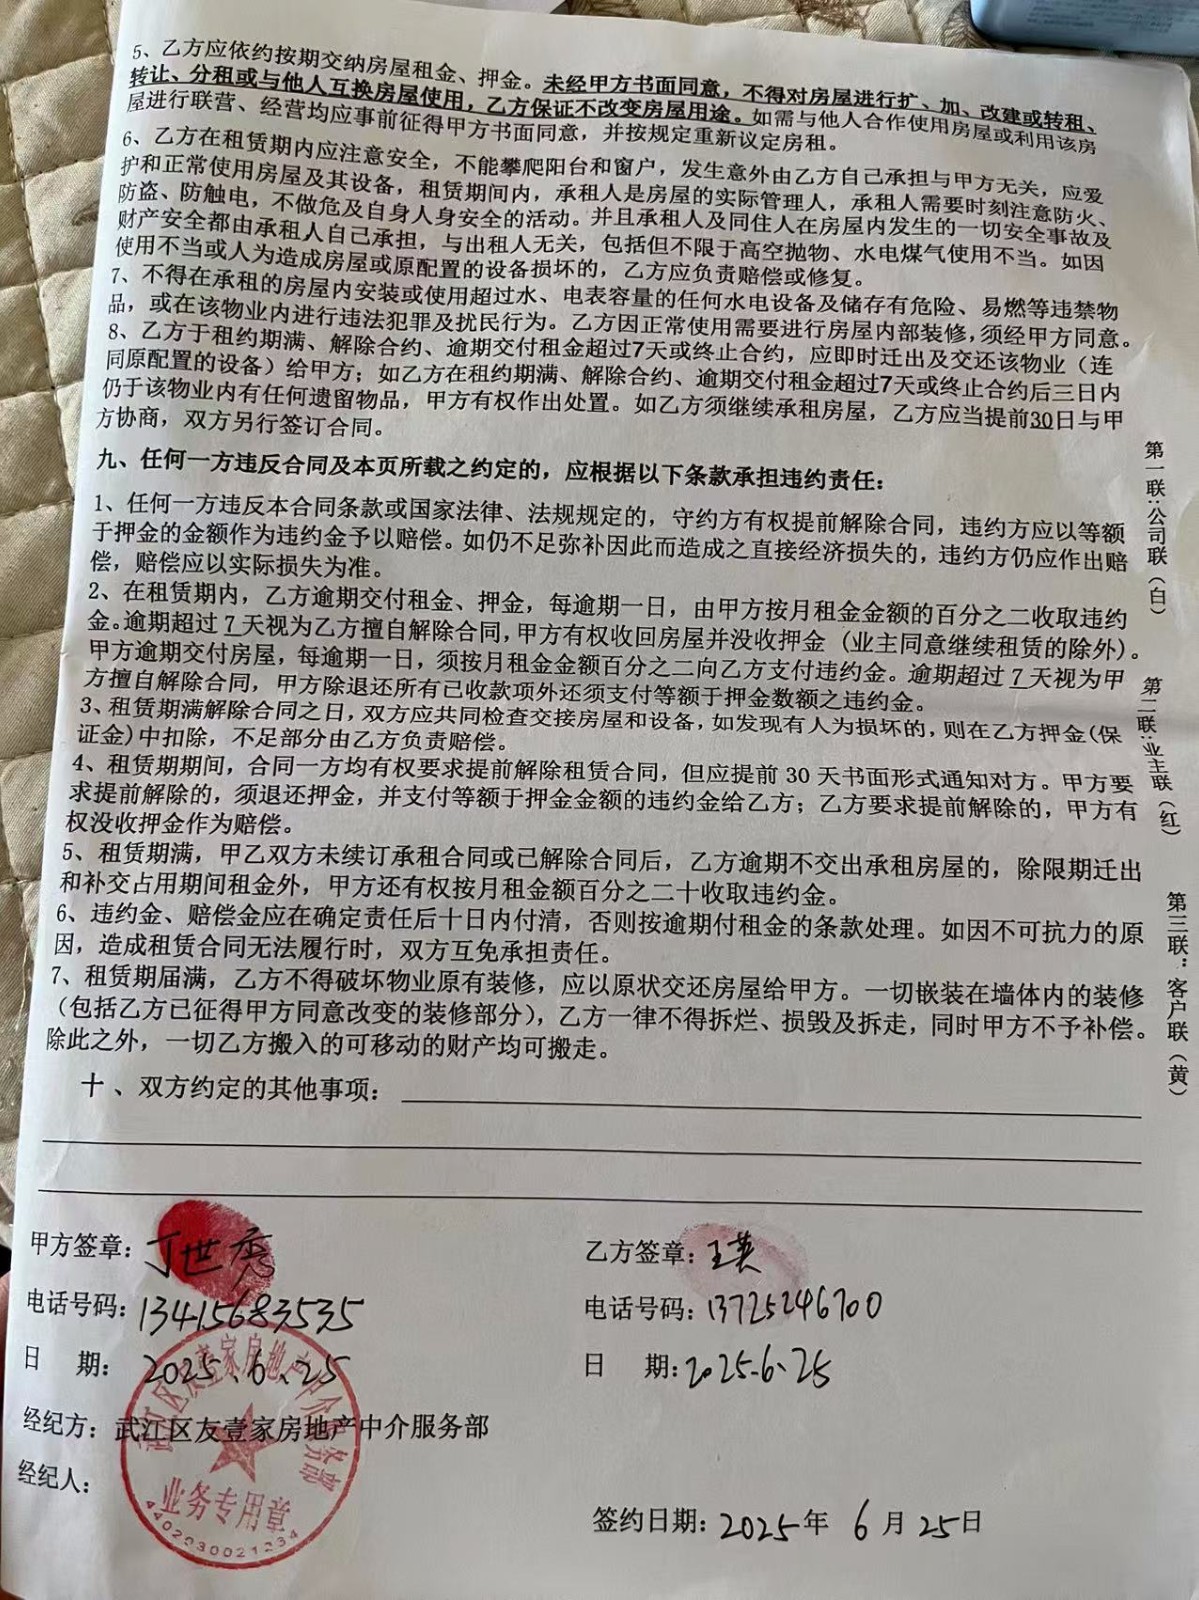 5、乙方应依约按期交纳房屋租金、押金。未经甲方书面同意，不得对房屋进行扩、加、改建或转租、
转让、分租或与他人互换房屋使用，乙方保证不改变房屋用途。如需与他人合作使用房屋或利用该房
屋进行联营、经营均应事前征得甲方书面同意，并按规定重新议定房租。
6、乙方在租赁期内应注意安全，不能攀爬阳台和窗户，发生意外由乙方自己承担与甲方无关，应爱
护和正常使用房屋及其设备，租赁期间内，承租人是房屋的实际管理人，承租人需要时刻注意防火、
防盗、防触电，不做危及自身人身安全的活动。并且承租人及同住人在房屋内发生的一切安全事故及
财产安全都由承租人自己承担，与出租人无关，包括但不限于高空抛物、水电煤气使用不当。如因
使用不当或人为造成房屋或原配置的设备损坏的，乙方应负责赔偿或修复。
7、不得在承租的房屋内安装或使用超过水、电表容量的任何水电设备及储存有危险、易燃等违禁物
品，或在该物业内进行违法犯罪及扰民行为。乙方因正常使用需要进行房屋内部装修，须经甲方同意。
8、乙方于租约期满、解除合约、逾期交付租金超过7天或终止合约，应即时迁出及交还该物业（连
同原配置的设备）给甲方；如乙方在租约期满、解除合约、逾期交付租金超过7天或终止合约后三日内
仍于该物业内有任何遗留物品，甲方有权作出处置。如乙方须继续承租房屋，乙方应当提前30日与甲
方协商，双方另行签订合同。
九、任何一方违反合同及本页所载之约定的，应根据以下条款承担违约责任：
1、任何一方违反本合同条款或国家法律、法规规定的，守约方有权提前解除合同，违约方应以等额
于押金的金额作为违约金予以赔偿。如仍不足弥补因此而造成之直接经济损失的，违约方仍应作出赔
偿，赔偿应以实际损失为准。
2、在租赁期内，乙方逾期交付租金、押金，每逾期一日，由甲方按月租金金额的百分之二收取违约
金。逾期超过7天视为乙方擅自解除合同，甲方有权收回房屋并没收押金（业主同意继续租赁的除外）。
甲方逾期交付房屋，每逾期一日，须按月租金金额百分之二向乙方支付违约金。逾期超过7天视为甲
方擅自解除合同，甲方除退还所有已收款项外还须支付等额于押金数额之违约金。
3、租赁期满解除合同之日，双方应共同检查交接房屋和设备，如发现有人为损坏的，则在乙方押金(保
证金)中扣除，不足部分由乙方负责赔偿。
4、租赁期期间，合同一方均有权要求提前解除租赁合同，但应提前30天书面形式通知对方。甲方要
求提前解除的，须退还押金，并支付等额于押金金额的违约金给乙方；乙方要求提前解除的，甲方有
权没收押金作为赔偿。
5、租赁期满，甲乙双方未续订承租合同或已解除合同后，乙方逾期不交出承租房屋的，除限期迁出
和补交占用期间租金外，甲方还有权按月租金额百分之二十收取违约金。
6、违约金、赔偿金应在确定责任后十日内付清，否则按逾期付租金的条款处理。如因不可抗力的原
因，造成租赁合同无法履行时，双方互免承担责任。
7、租赁期届满，乙方不得破坏物业原有装修，应以原状交还房屋给甲方。一切嵌装在墙体内的装修
（包括乙方已征得甲方同意改变的装修部分），乙方一律不得拆烂、损毁及拆走，同时甲方不予补偿。
除此之外，一切乙方搬入的可移动的财产均可搬走。
十、双方约定的其他事项：
第一联：公司联（白）
第二联：业主联（红）
第三联：客户联（黄）
甲方签章：丁世秀
电话号码：13415683535
日 期：2025.6.25
经纪方：武江区友壹家房地产中介服务部
经纪人：
乙方签章：王英
电话号码：13725246700
日 期：2025.6.25
签约日期：2025年6月25日
武江区友壹家房地产中介服务部
业务专用章
4402030021234